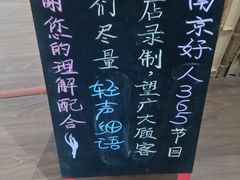 南京好人365节目
店录制,望广大顾客
们尽量轻声细语
谢您的理解配合